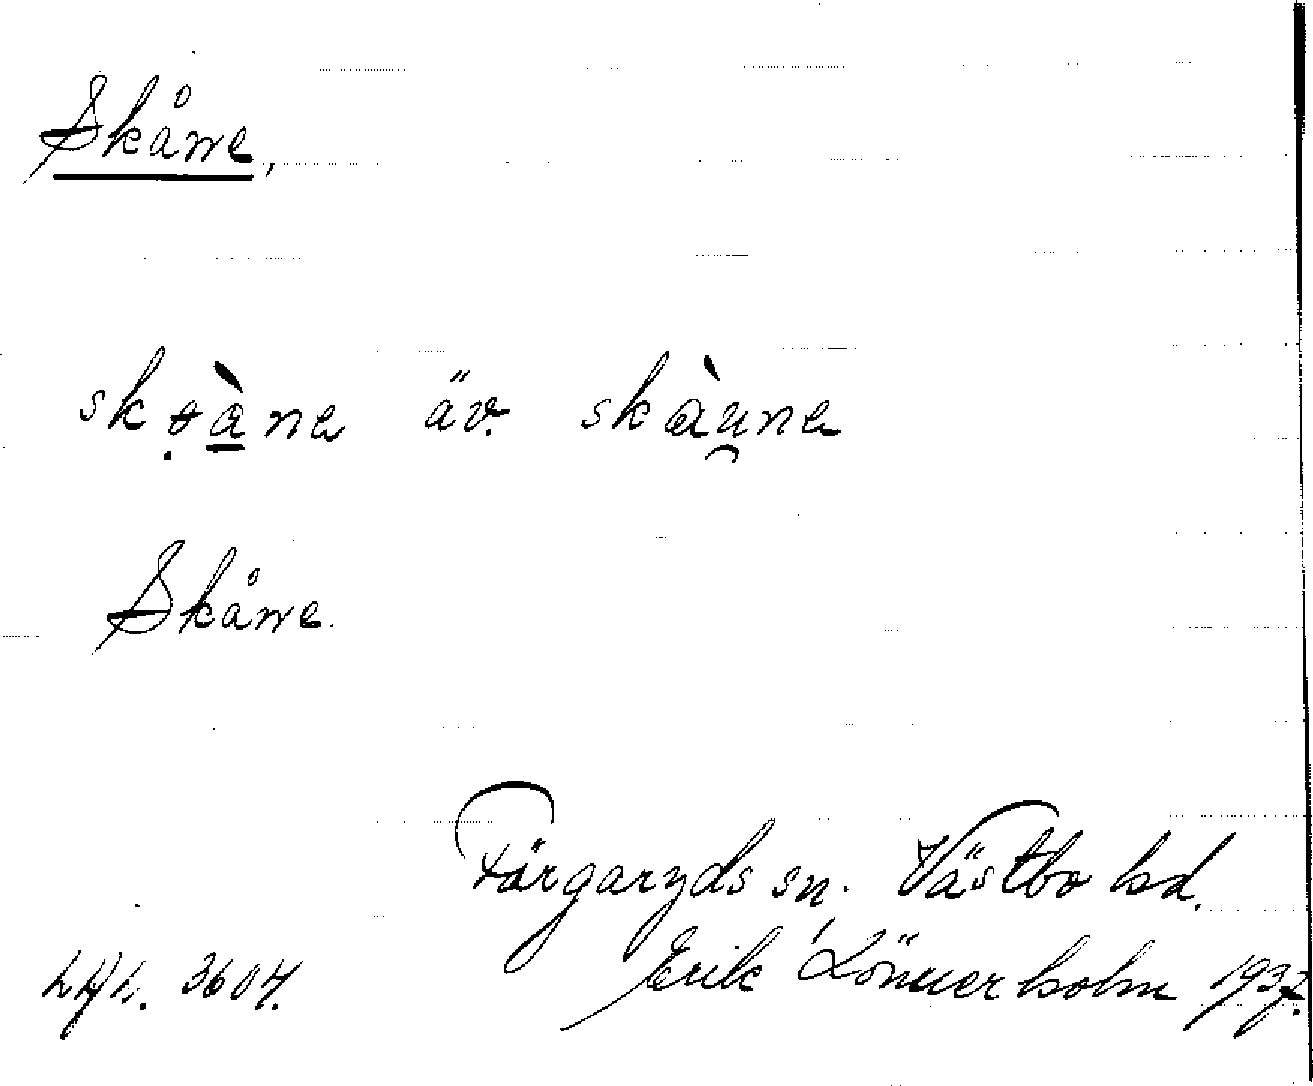 Skåne,
skɵ̣à̲ne äv. skàu̯ne
Skåne.
Färgaryds sn. Västbo hd.
Erik Lönnerholm 1937.
3604.